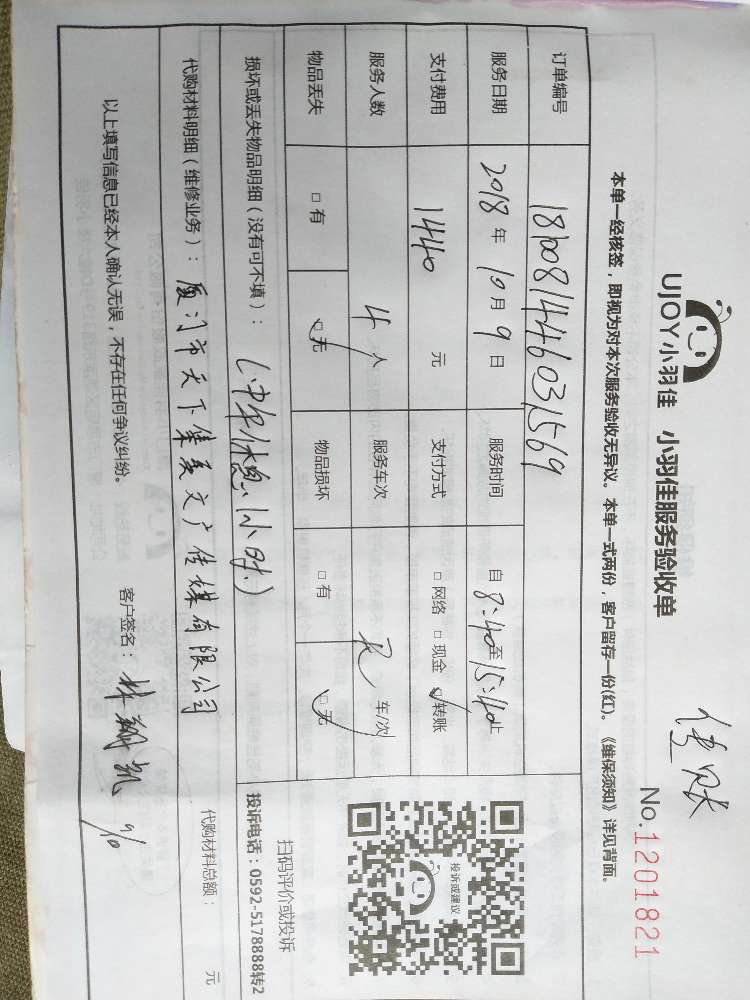 UJOY小羽佳 小羽佳服务验收单
No.1201821
本单一经核签，即视为对本次服务验收无异议。本单一式两份，客户留存一份(红)。《维保须知》详见背面。
订单编号
服务日期 2018年10月9日 服务时间 自8:40至15:40止
支付费用 1440元 支付方式 □网络 □现金 ☑转账
服务人数 4人 服务车次 车/次
物品丢失 □有 ☑无 物品损坏 □有 ☑无
投诉或建议
扫码评价或投诉
投诉电话：0592-5178888转2
损坏或丢失物品明细（没有可不填）： (中午休息1小时.)
代购材料明细（维修业务）： 厦门市天下集美文广传媒有限公司
代购材料总额： 元
以上填写信息已经本人确认无误，不存在任何争议纠纷。
客户签名：